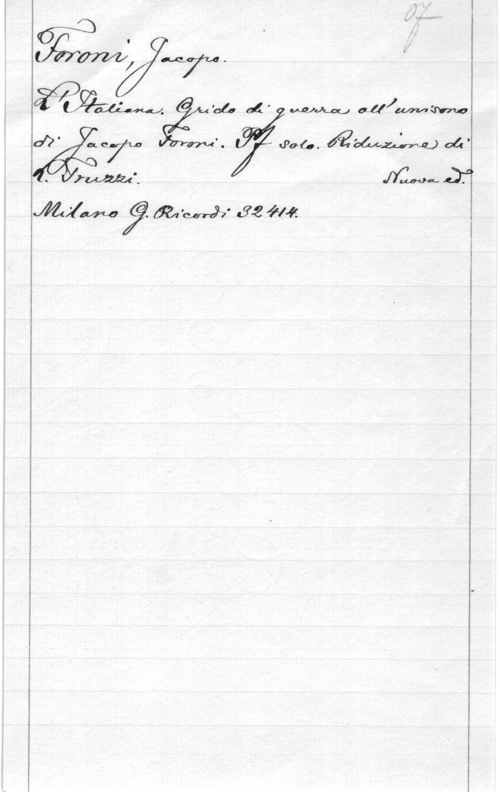 Pf
Foroni, Jacopo.
L'Italiana. Grido di guerra all'unisono
di Jacopo Foroni. Pf solo. Riduzione di
L. Truzzi. Nuova ed.
Milano G. Ricordi 32414.